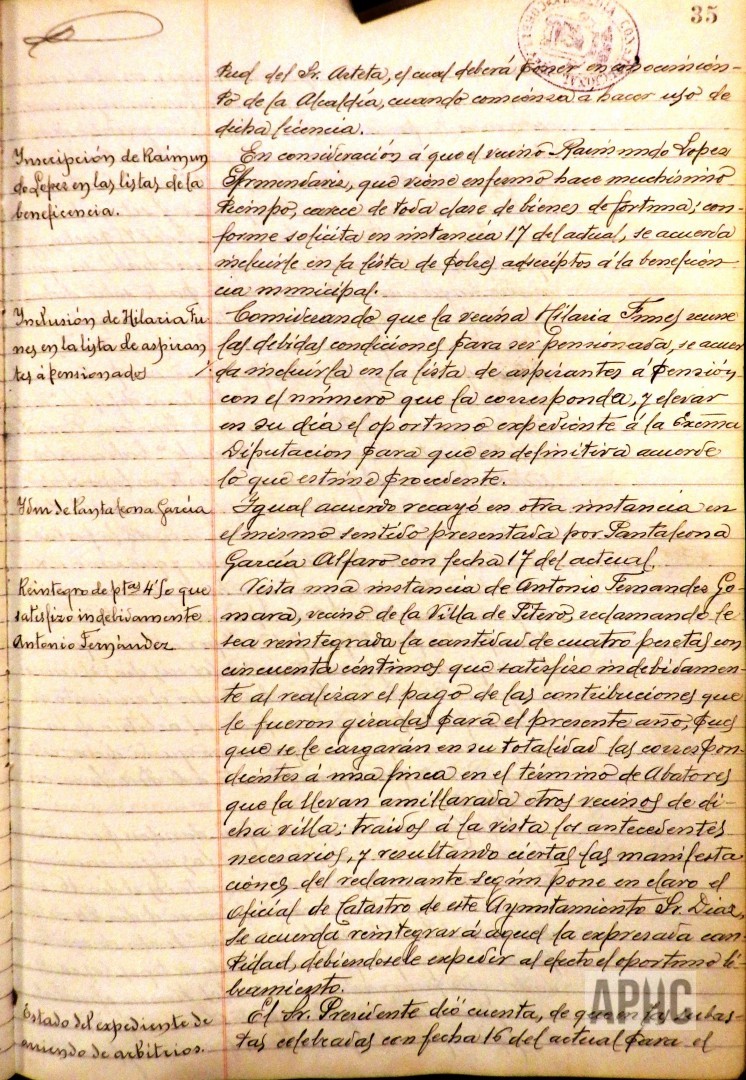 35
tud del Sr. Arteta, el cual deberá poner en conocimien-
to de la Alcaldía, cuando comienza á hacer uso de
dicha licencia.
Inscripción de Raimun
do Lopez en las listas de la
beneficencia.
En consideración á que el vecino Raimundo Lopez
Armendariz, que viene enfermo hace muchisimo
tiempo, carece de toda clase de bienes de fortuna; con-
forme solicita en instancia 17 del actual, se acuerda
incluirle en la lista de pobres adscriptos á la beneficen-
cia municipal.
Inclusión de Hilaria Fu
nes en la lista de aspiran
tes á pensionados
Considerando que la vecina Hilaria Funes reune
las debidas condiciones para ser pensionada, se acuer
da incluirla en la lista de aspirantes á pensión
con el número que la corresponda, y elevar
en su dia el oportuno expediente á la Excma
Diputacion para que en definitiva acuerde
lo que estime procedente.
Idm de Pantaleona García
Igual acuerdo recayó en otra instancia en
el mismo sentido presentada por Pantaleona
García Alfaro con fecha 17 del actual.
Reintegro de ptas 4'50 que
satisfizo indebidamente
Antonio Fernández
Vista una instancia de Antonio Fernandez Go
mara, vecino de la Villa de Fitero, reclamando le
sea reintegrada la cantidad de cuatro pesetas con
cincuenta céntimos que satisfizo indebidamen-
te al realizar el pago de las contribuciones que
le fueron giradas para el presente año, pues
que se le cargarán en su totalidad las correspon-
dientes á una finca en el término de Abatores
que la llevan amillarada otros vecinos de di-
cha villa: traidos á la vista los antecedentes
necesarios, y resultando ciertas las manifesta
ciones del reclamante según pone en claro el
Oficial de Catastro de este Ayuntamiento Sr. Diaz,
se acuerda reintegrar á aquel la expresada can-
tidad, debiendosele expedir al efecto el oportuno li-
bramiento.
Estado del expediente de
arriendo de arbitrios.
El Sr. Presidente dió cuenta, de que en las subas-
tas celebradas con fecha 16 del actual para el
APHC